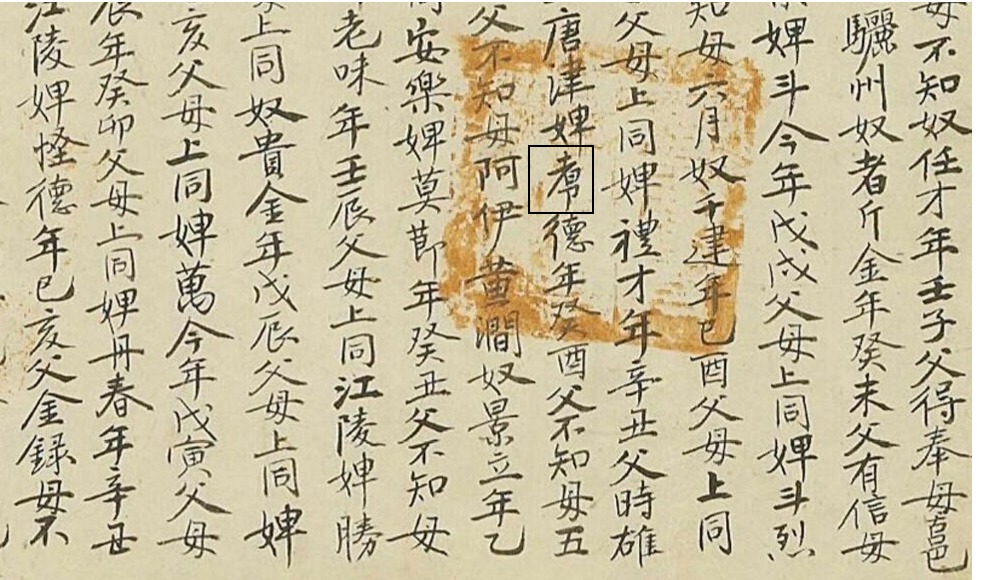 母不知奴任才年壬子父得奉母邑
驪州奴者斤金年癸未父有信母
婢斗今年戊戌父母上同婢斗烈
知母六月奴千建年己酉父母上同
父母上同婢禮才年辛丑父時雄
唐津婢德年癸酉父不知母五
父不知母阿伊黃澗奴景立年乙
安樂婢莫節年癸丑父不知母
老味年壬辰父母上同江陵婢勝
上同奴貴金年戊辰父母上同婢
亥父母上同婢萬今年戊寅父母
辰年癸卯父母上同婢丹春年辛丑
江陵婢怪德年己亥父金録母不